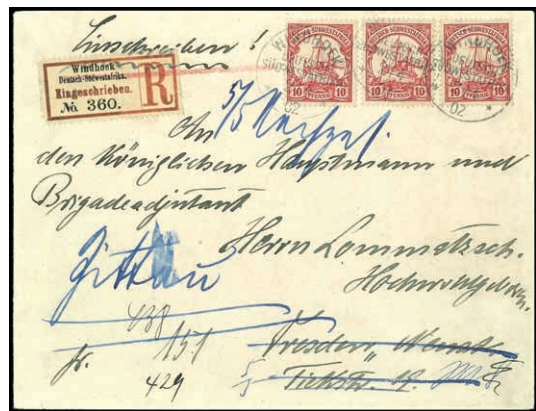 Einschreiben!
Windhoek
Deutsch-Südwestafrika.
Eingeschrieben.
R
№ 360.
DEUTSCH-SÜDWESTAFRIKA
10 PFENNIG 10
DEUTSCH-SÜDWESTAFRIKA
10 PFENNIG 10
DEUTSCH-SÜDWESTAFRIKA
10 PFENNIG 10
WINDHOEK
02
WINDHOEK
02
An
den Königlichen Hauptmann und
Brigadeadjutant
Herrn Lommatzsch.
Hochwohlgeboren.
Zittau
438
151
fr.
429
Dresden, Neust.
Tieckstr. 19.